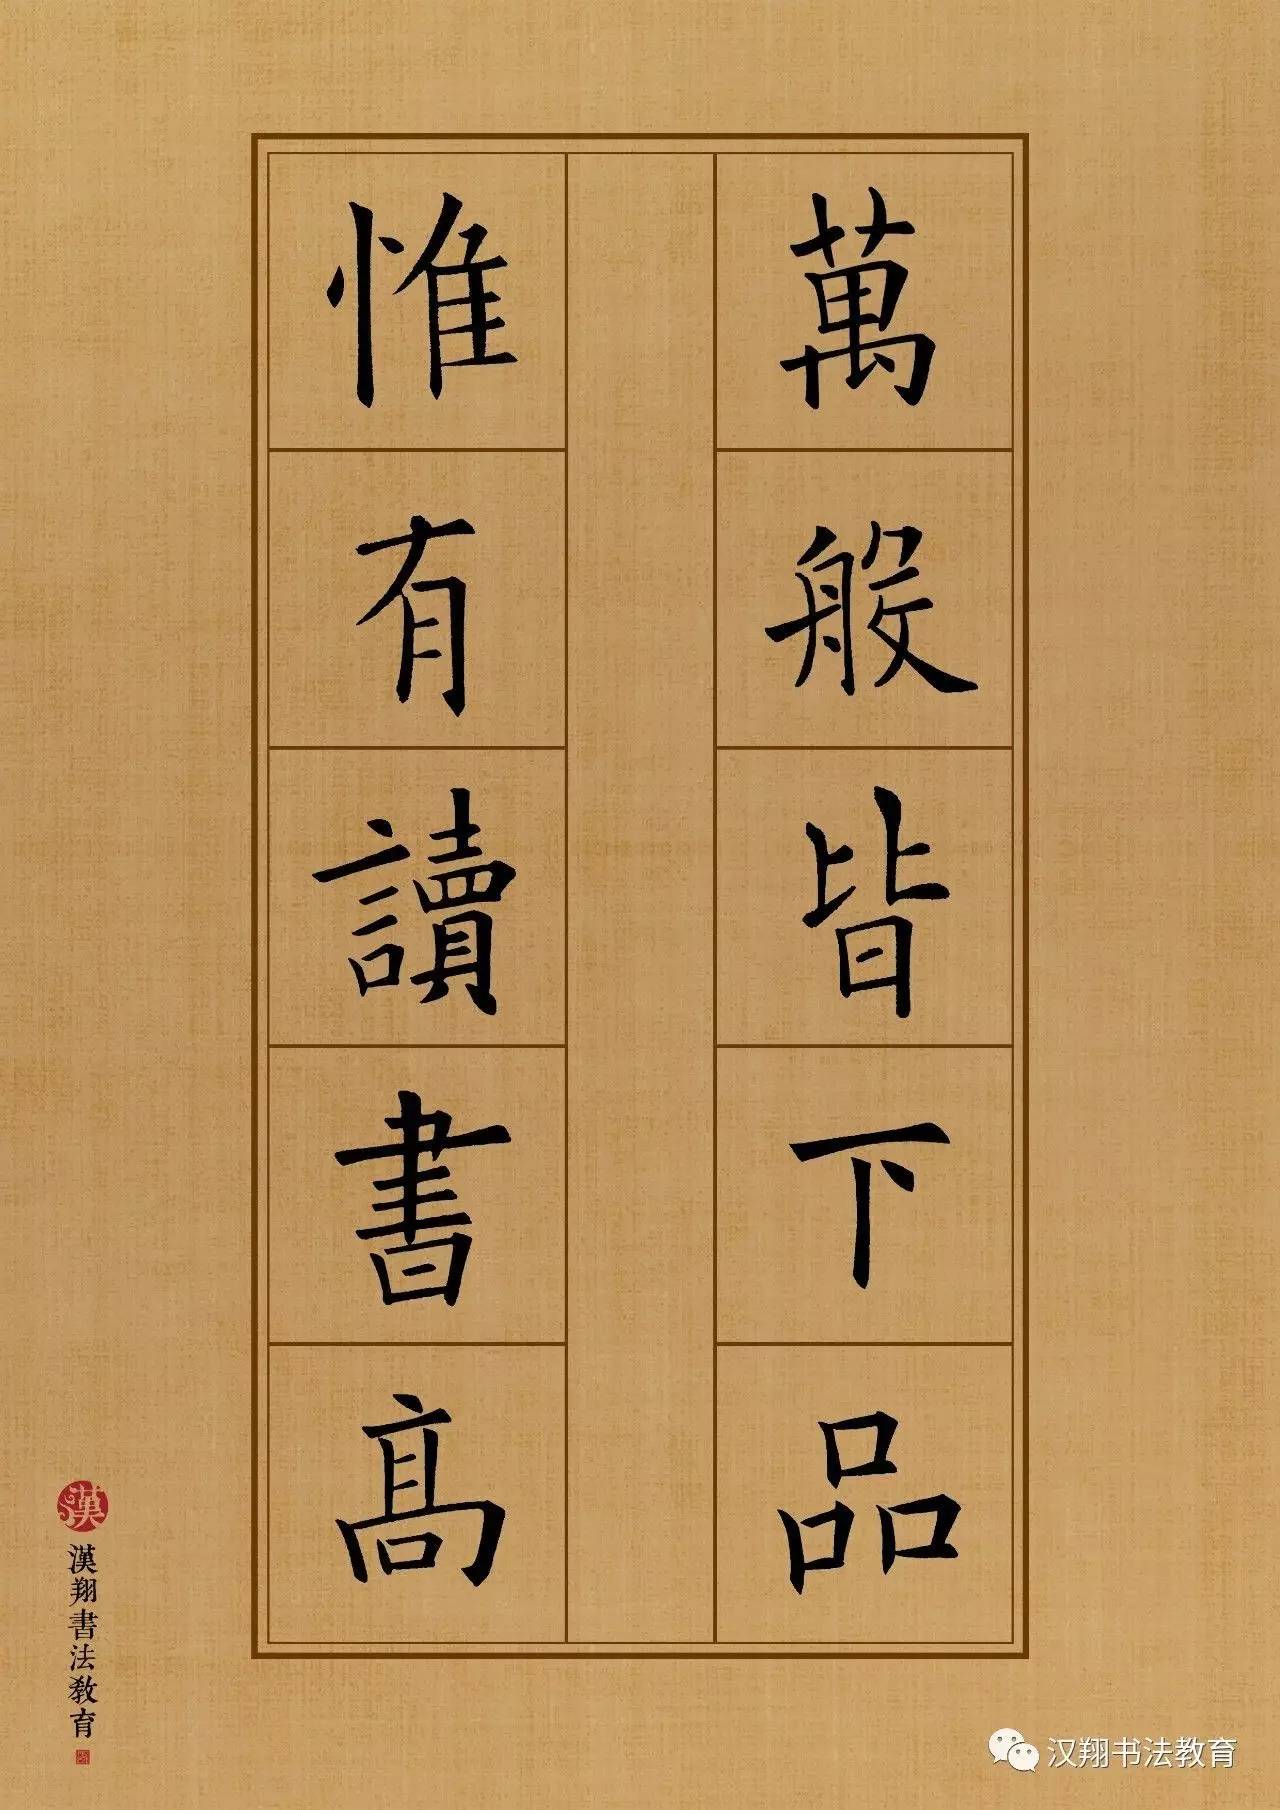 萬般皆下品
惟有讀書高
漢
漢翔書法教育
汉翔书法教育